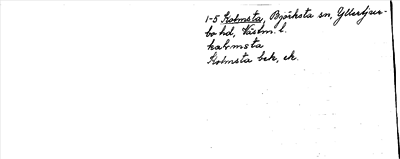 1-5 Kolmsta, Björksta sn, Yttertjur-
bo hd, Västm. l.
kalvmsta
Kolmsta bek, ek.